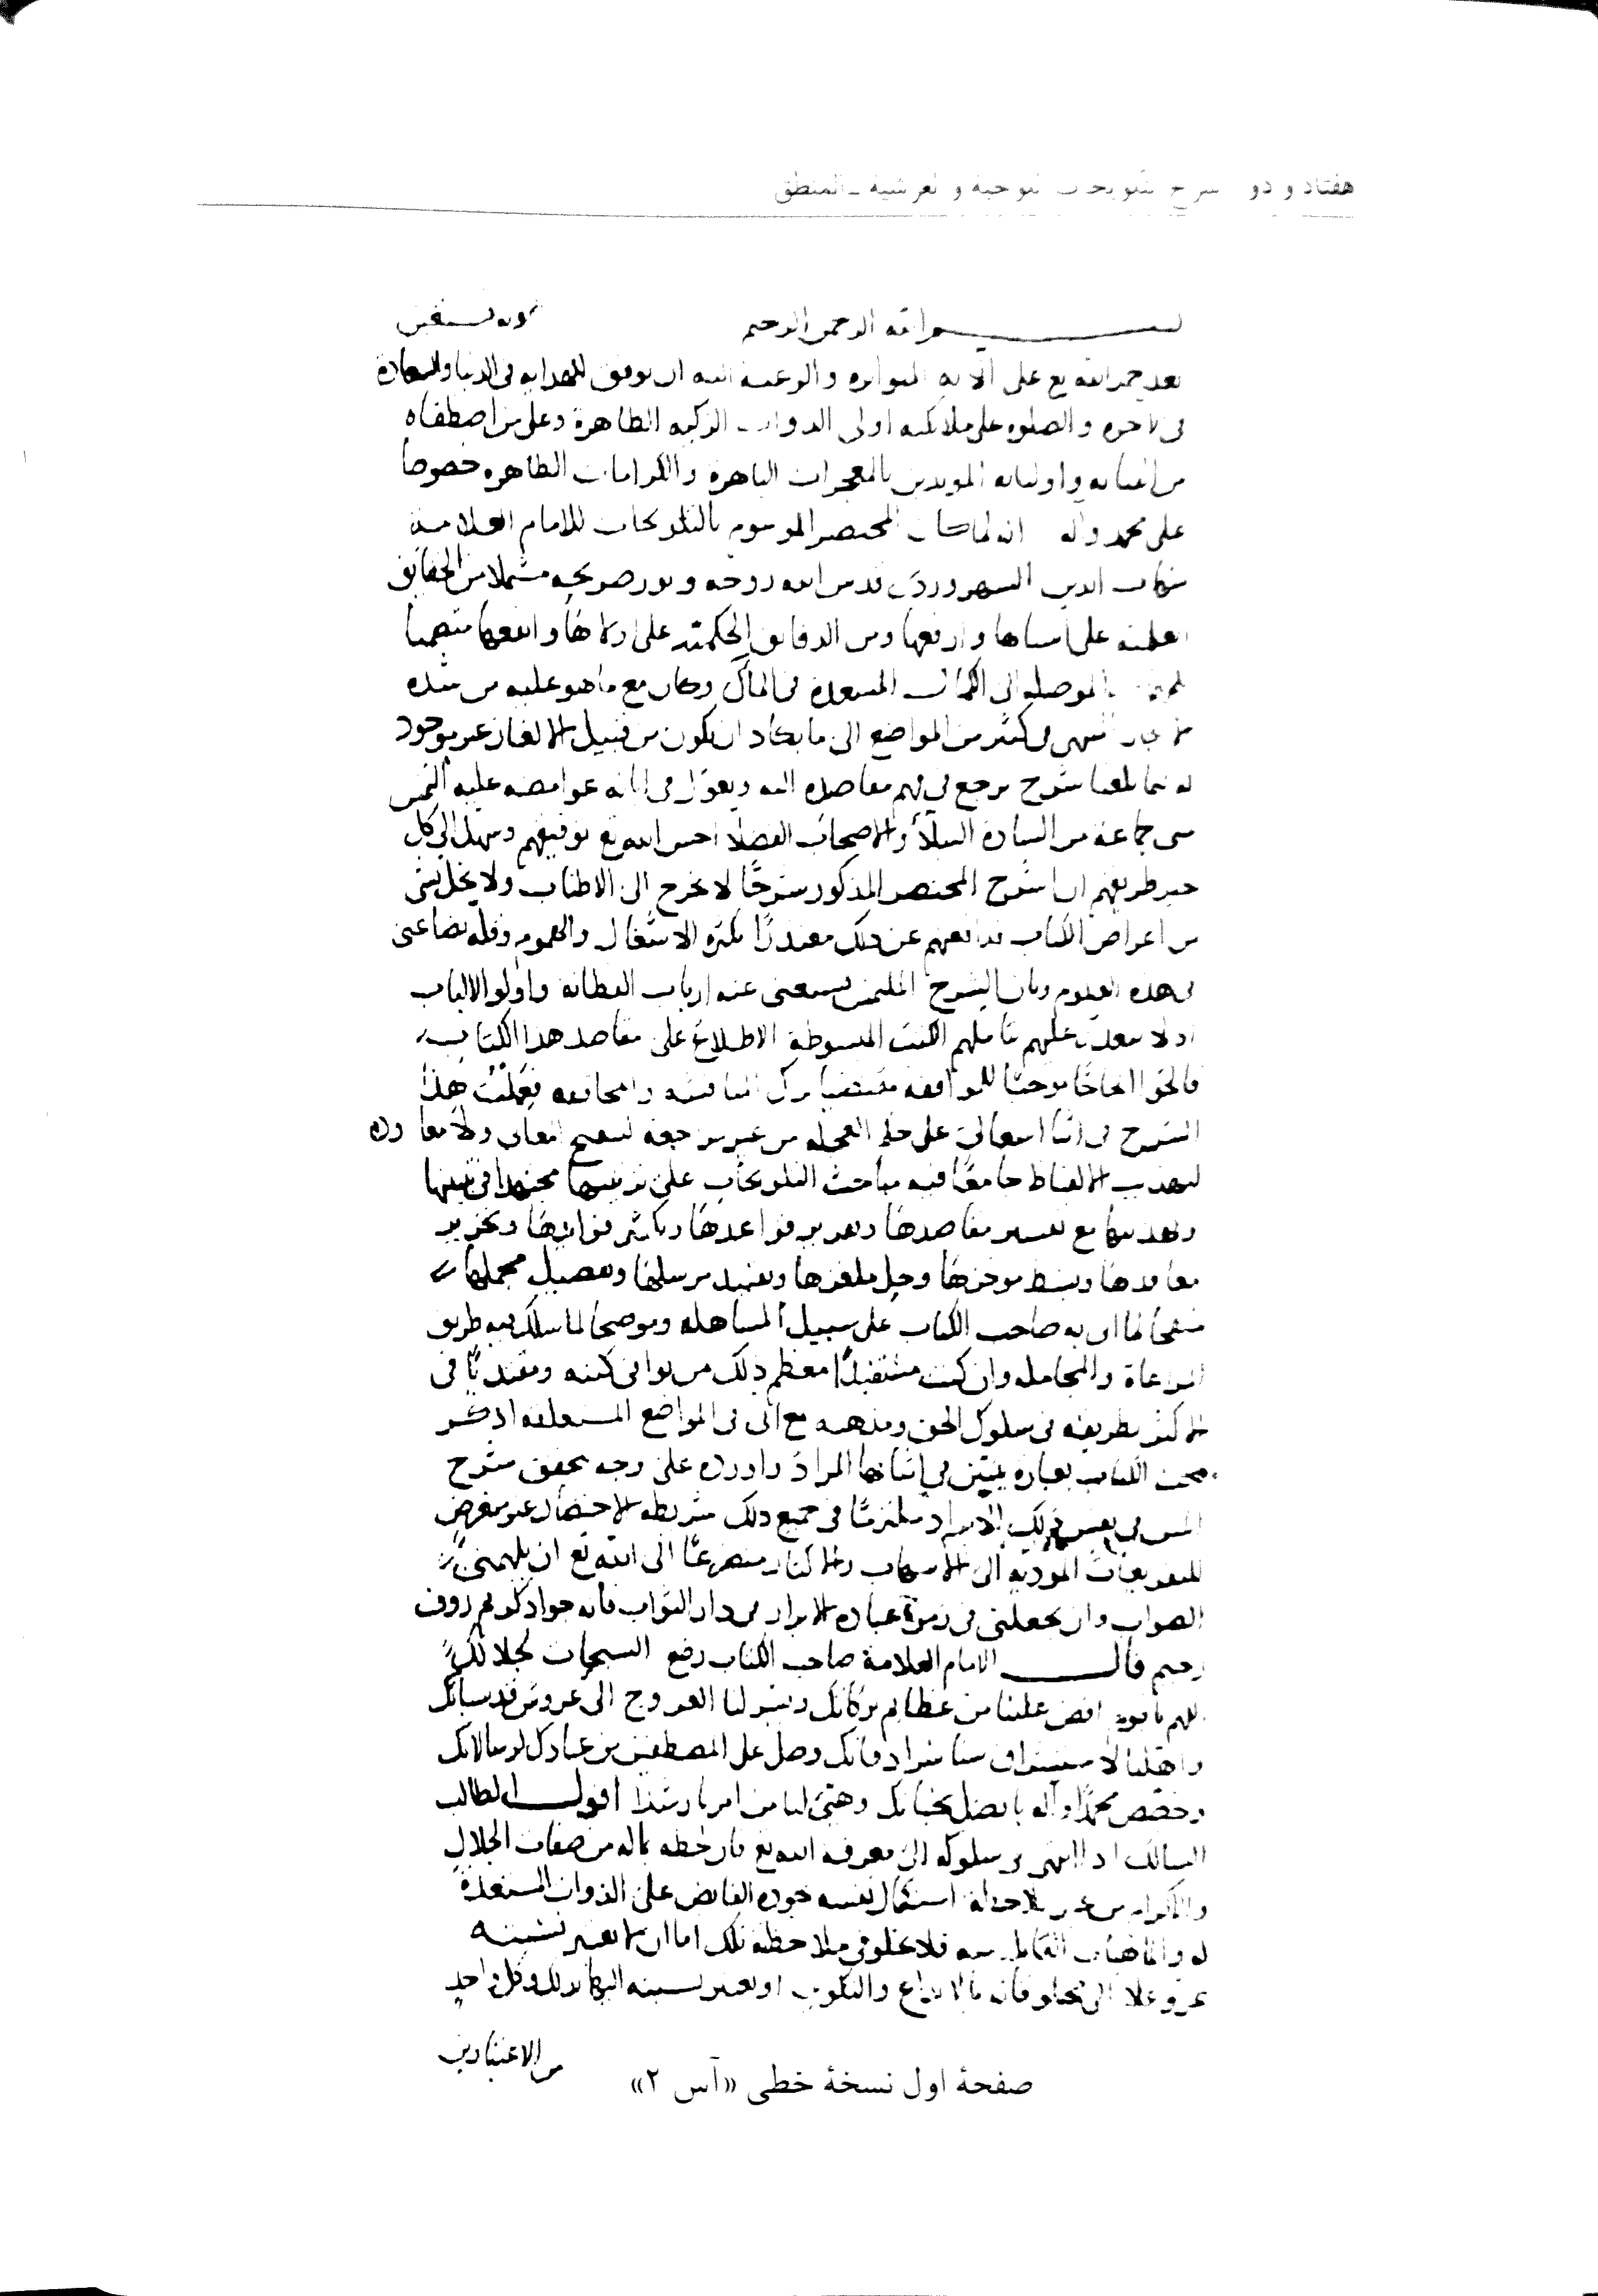 هفتاد و دو شرح التلويحات اللوحية و العرشية ـ المنطق
بسم الله الرحمن الرحيم وبه نستعين
بعد حمد الله تع على آلائه المتواترة والرغبة اليه ان يوفق للهداية فى الدنيا والسعادة
فى الاخرة والصلوة على ملائكته اولى الذوات الزكية الطاهرة وعلى من اصطفاه
من انبيائه واوليائه المويدين بالمعجزات الباهرة والكرامات الظاهرة خصوصاً
على محمد وآله انه لما كان المختصر الموسوم بالتلويحات للامام العلامة
شهاب الدين السهروردى قدس الله روحه ونور ضريحه مشتملا من الحقايق
العلمية على اسناها وارفعها ومن الدقايق الحكمية على وانفعها متضمنا
الموصلة الى الكمالات المسعدة فى المآل وكان مع ما هو عليه من شدة
ينتهى فى كثير من المواضع الى ما يكاد ان يكون من قبيل الالغاز غير موجود
له فيما بلغنا شرح يرجع فى فهم مقاصده اليه ويعول فى ابانة غوامضه عليه التمس
منى جماعة من السادة النبلاء والاصحاب الفضلا احسن الله تع توفيقهم وسهل الى كل
خير طريقهم ان اشرح المختصر المذكور شرحًا لا يخرج الى الاطناب ولا يخل بشى
من اغراض الكتاب فدافعهم عن ذلك معتذرًا بكثرة الاشغال والهموم وقلة بضاعتى
فى هذه العلوم وبان الشرح الملتمس يستغنى عنه ارباب الفطانة واولو الالباب
اذ لا يتعذر عليهم بتاملهم الكتب المبسوطة الاطلاع على مقاصد هذا الكتاب
فالحوا الحاحًا موجبًا للموافقة مقتضيا ترك المنافسة والمحاققة فعملت هذا
الشرح فى اثنا اشتغالى على حكم العجلة من غير مراجعة لتنقيح المعانى ولا معاودة
لتهذيب الالفاظ جامعًا فيه مباحث التلويحات على ترتيبها مجتهدا فى تبيينها
وتهذيبها مع تفسير مقاصدها وتقرير قواعدها وتكثير فوايدها وتحرير
معاقدها وبسط موجزها وحل ملغزها وتقييد مرسلها وتفصيل مجملها
منقحا لما اتى به صاحب الكتاب على سبيل المساهلة وموضحا لما سلك فيه طريق
المراعاة والمجاملة وان كنت مستفيدًا معظم ذلك من بواقى كتبه ومقتديًا فى
الاكثر بطريقه فى سلوك الحق ومذهبه مع انى فى المواضع المستغلقة اذكر
بحث الكتاب بعبارة يتبين فى اثنائها المراد واورده على وجه يحقق شرح
المتن فى نفس ذلك الايراد ملتزمًا فى جميع ذلك شريطة الاختصار غير متعرض
للتفريعات المودية الى الاسهاب والاكثار متضرعًا الى الله تع ان يلهمنى
الصواب وان يجعلنى فى زمرة عباده الابرار فى دار الثواب فانه جواد كريم رؤف
رحيم قال الامام العلامة صاحب الكتاب رضع السبحات لجلالك
اللهم يا قيوم افض علينا من عظايم بركاتك ويسر لنا العروج الى عروش قدسياتك
واهلنا لاستشراق سنا سرادقاتك وصل على المصطفين من عبادك لرسالاتك
وخصص محمدًا وآله بافضل تحياتك وهيئ لنا من امرنا رشدا اقول الطالب
السالك اذا انتهى سلوكه الى معرفة الله تع فان لحظه بما له من صفات الجلال
والاكرام من غير ملاحظة استكمال نفسه بجوده الفايض على الذوات المستعدة
له والماهيات القابلة منه فلا يخلو فى ملاحظته تلك اما ان لا يعتبر نسبته
عز وعلا الى مخلوقاته بالابداع والتكوين او يعتبر نسبته اليها بذلك وكل واحد
من الاعتبارين
صفحۀ اول نسخۀ خطی «آس ۲»